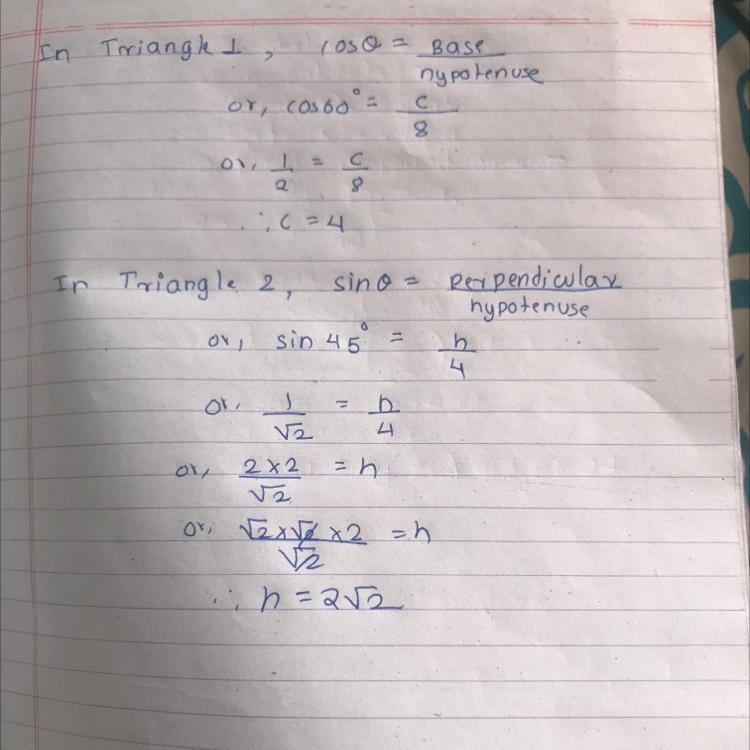 In Triangle 1, cosθ = Base/hypotenuse
or, cos60° = c/8
or, 1/2 = c/8
∴ c = 4
In Triangle 2, sinθ = perpendicular/hypotenuse
or, sin 45° = h/4
or, 1/√2 = h/4
or, 2×2/√2 = h
or, √2×√2×2/√2 = h
∴ h = 2√2